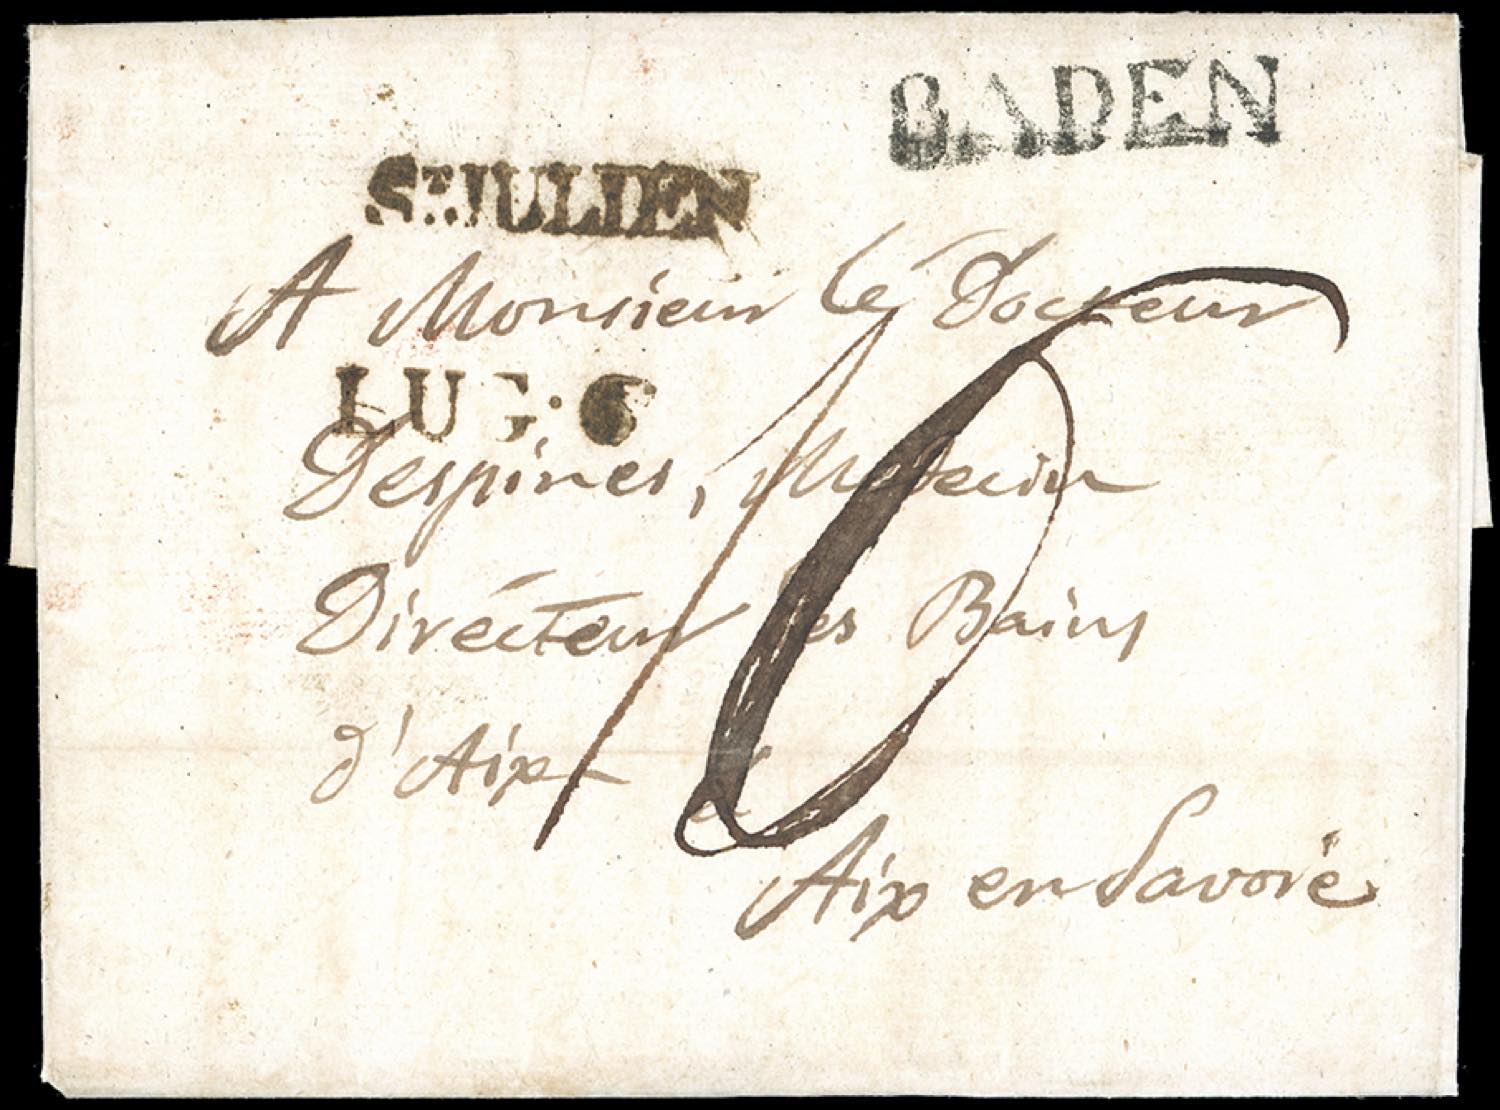 BADEN
ST. JULIEN
A Monsieur le Docteur
LUG: 6
Despines, Medecin
Directeur des Bains
d'Aix
à
Aix en Savoie
10